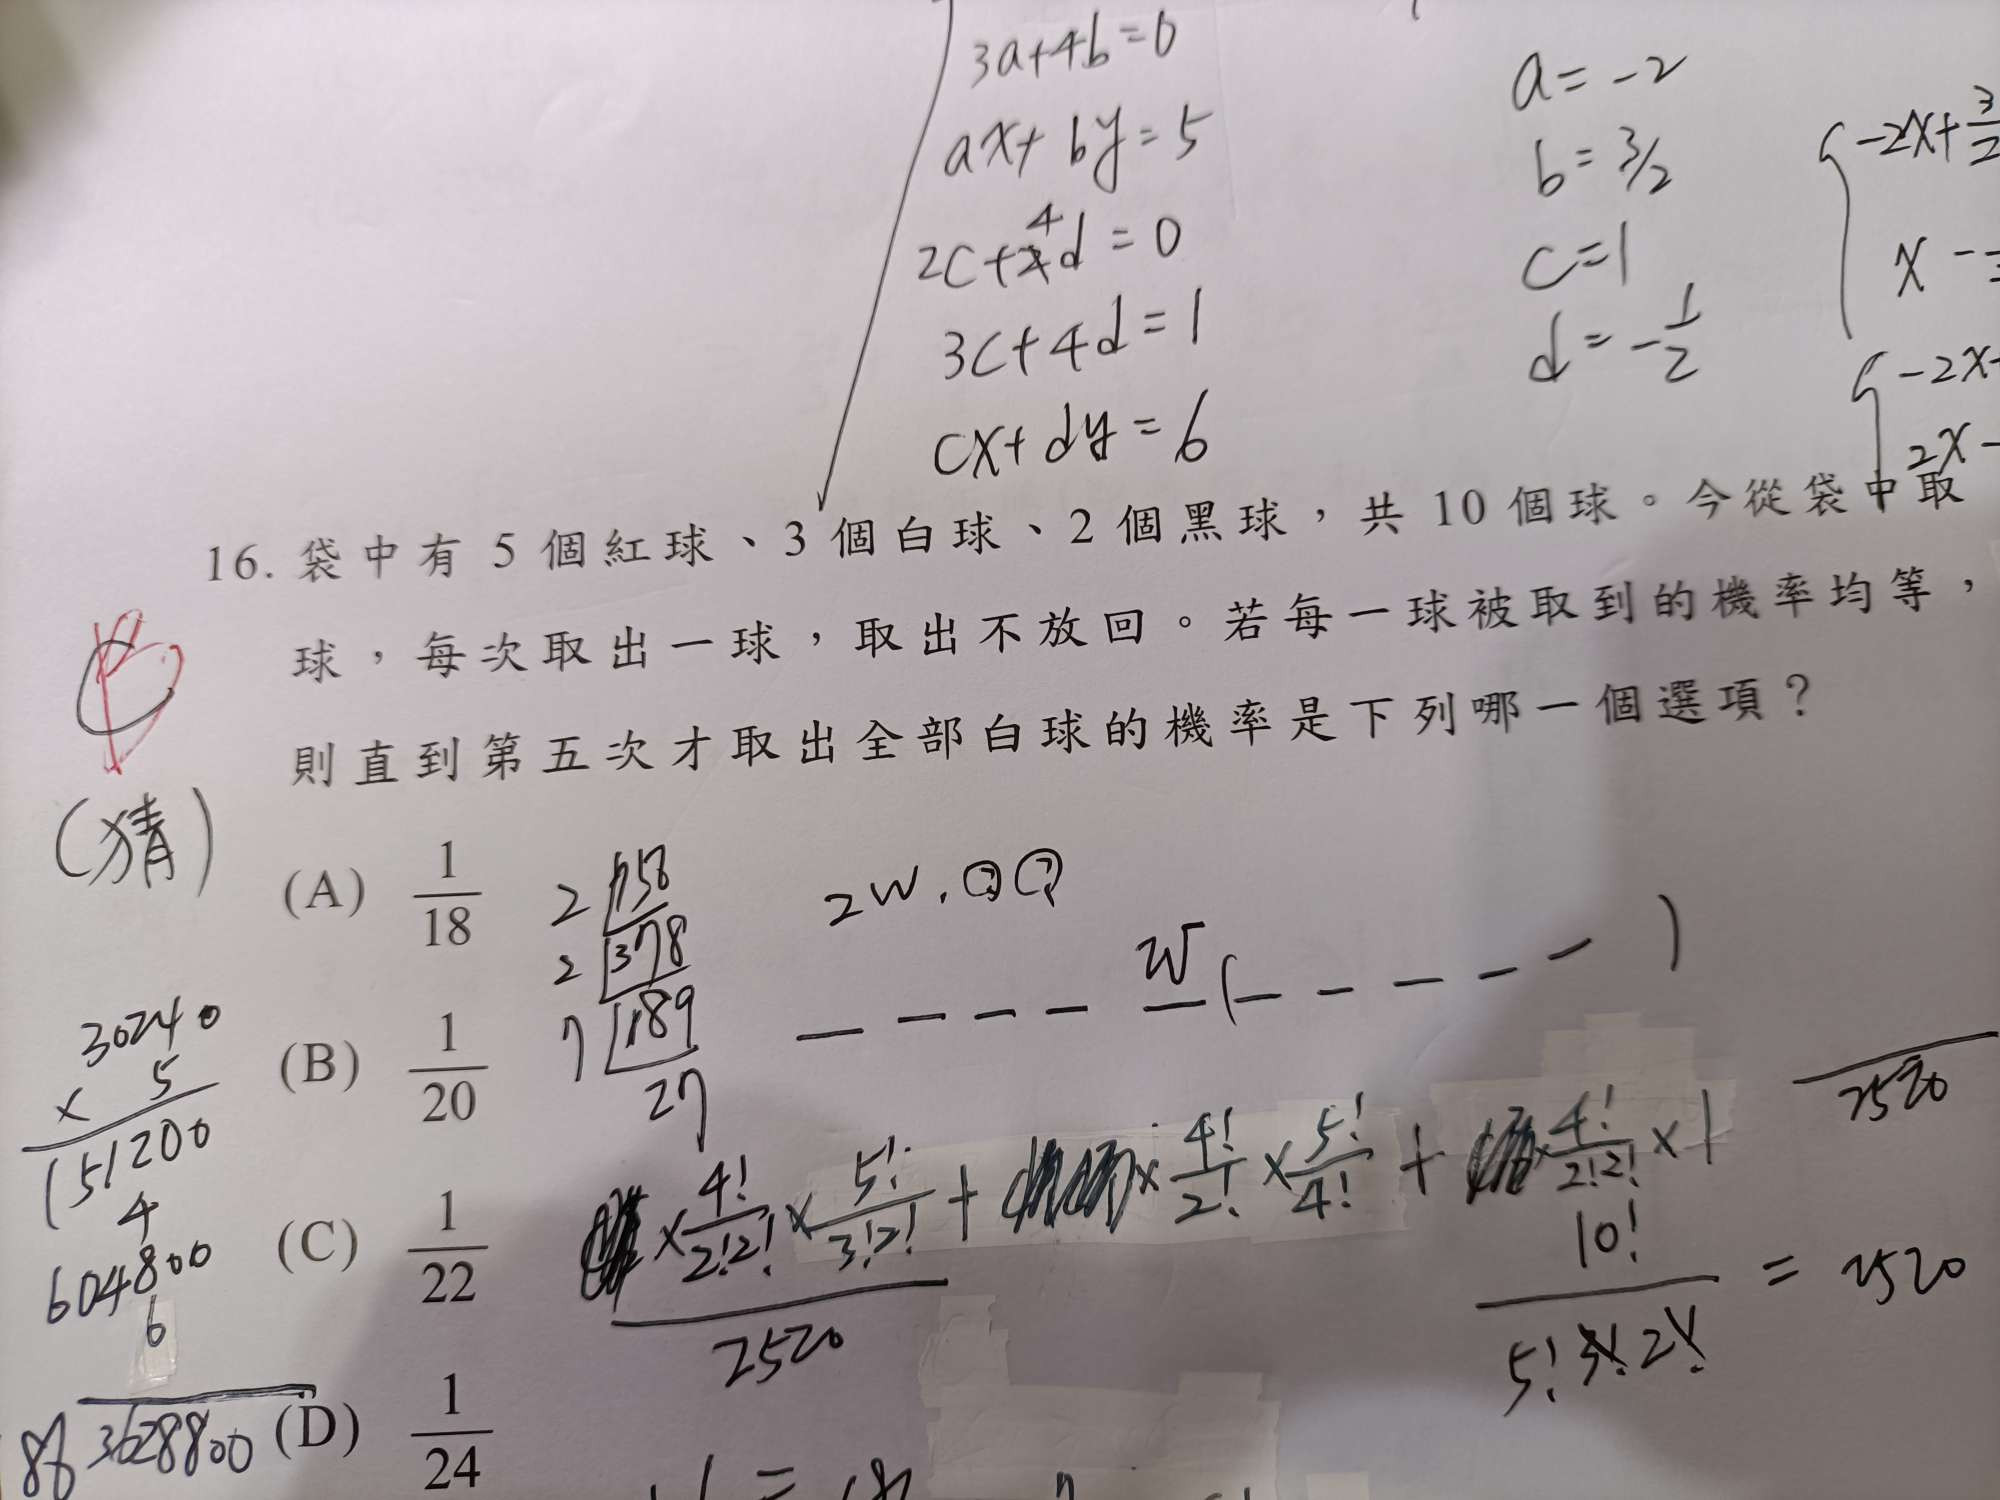 3a+4b=0
ax+by=5
2c+4d=0
3c+4d=1
cx+dy=6
a=-2
b=3/2
c=1
d=-1/2
-2x+3/2
x-
-2x-
2x-
16. 袋中有 5 個紅球、3 個白球、2 個黑球，共 10 個球。今從袋中取
球，每次取出一球，取出不放回。若每一球被取到的機率均等，
則直到第五次才取出全部白球的機率是下列哪一個選項？
(猜)
(A) 1/18
(B) 1/20
(C) 1/22
(D) 1/24
2
2 378
7 189
27
2W,
W
( )
2520
×4!/2!2!×5!/3!2!+ ×4!/2!×5!/4!+ ×4!/2!2!×1
2520
10!/5!3!2! = 2520
30240
× 5
151200
4
604800
6
3628800